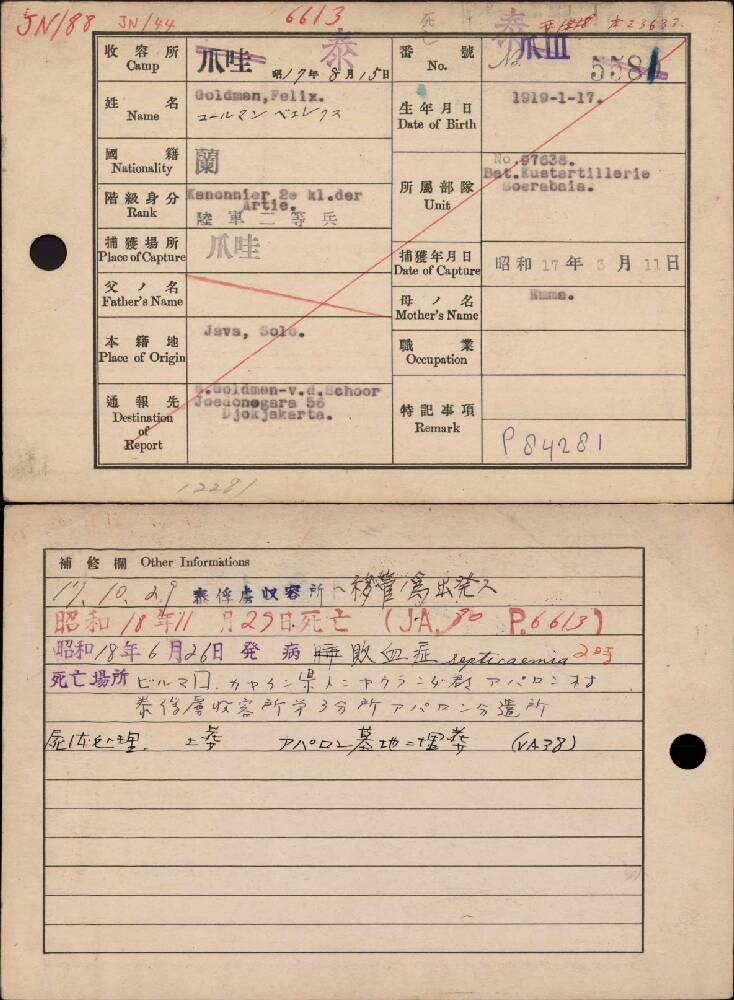 JN/88 JN/44 6613 死亡 泰
收容所 Camp 爪哇 泰 昭17年8月15日
番號 No. 爪 No. 5581
姓名 Name Goldman,Felix.
ゴールマン ベエレクス
生年月日 Date of Birth 1919-1-17.
國籍 Nationality 蘭
階級身分 Rank Kanonnier 2e kl.der
Artie.
陸軍二等兵
所屬部隊 Unit No.97638.
Bat.Kustartillerie
Soerabaia.
捕獲場所 Place of Capture 爪哇
捕獲年月日 Date of Capture 昭和17年3月11日
父ノ名 Father's Name
母ノ名 Mother's Name Emma.
本籍地 Place of Origin Java, Solo.
職業 Occupation
通報先 Destination of Report
Goldman-v.d.Schoor
Joedonegara 56
Djokjakarta.
特記事項 Remark
P 84281
12281
補修欄 Other Informations
17.10.29 泰俘虜収容所へ移管ノ為出発ス
昭和18年11月29日死亡 (JA.90 P.6613)
昭和18年6月26日発病 敗血症 septicaemia
死亡場所 ビルマ国.カヤイン県 アパロン村
泰俘虜收容所第3分所アパロン分遣所
屍体処理. 土葬 アパロン墓地ニ埋葬 (VA38)